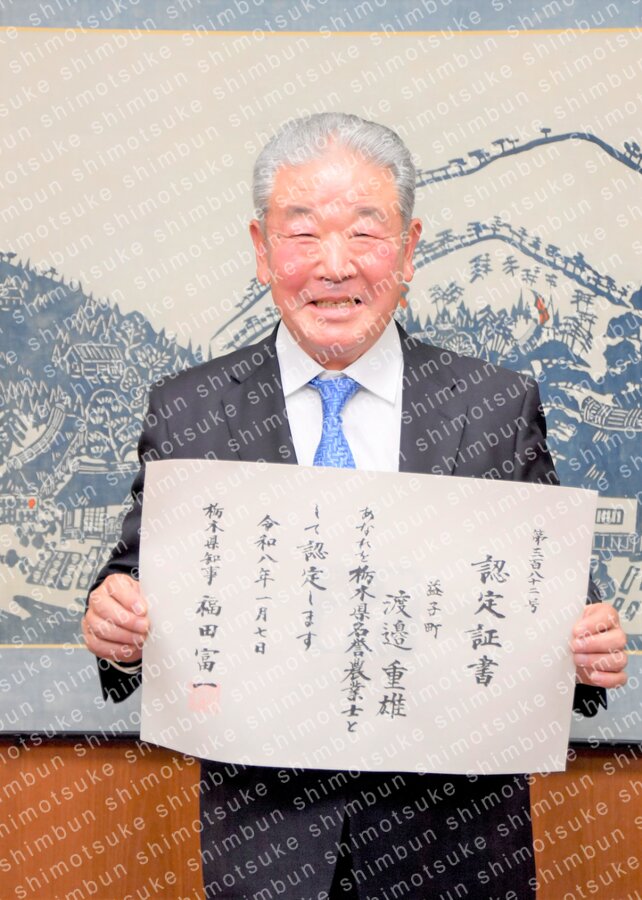 第三百八十二号
認定証書
益子町
渡邉重雄
あなたを栃木県名誉農業士と
して認定します
令和八年一月七日
栃木県知事 福田富一
shimotsuke shimbun